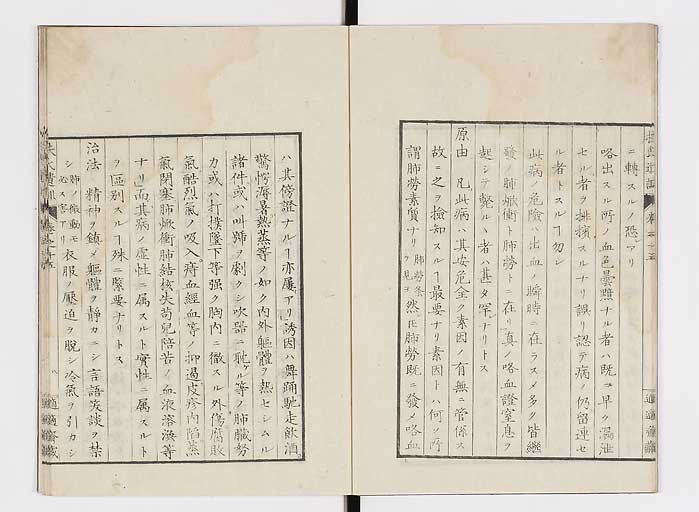 ニ轉スルノ恐アリ
咯出スル所ノ血色曇黯ナル者ハ既ニ早ク漏泄
セル者ヲ排擯スルナリ誤リ認テ病ノ仍留連セ
ル者トスルヿ勿レ
此病ノ危險ハ出血ノ瞬時ニ在ラスメ多ク皆繼
發ノ肺焮衝肺勞トニ在リ真ノ咯血證窒息ヲ
起シテ斃ルヽ者ハ甚タ罕ナリトス
原由 凡此病ハ其安危全ク素因ノ有無ニ管係ス
故ニ之ヲ撿知スルヿ最要ナリ素因トハ何ノ所
謂肺勞素質ナリ肺勞條ヲ見ヨ然𪜈肺勞既ニ發メ咯血
ハ其傍證ナルヿ亦屢アリ誘因ハ舞踊馳走飲酒
驚愕海暑熱蒸等ノ如ク内外軀體ヲ熱セシムル
諸件或ハ叫號ヲ劇クシ吹器ニ耽ケル等ノ肺臟努
力或ハ打撲墜下等強ク胸内ニ徹スル外傷腐敗
氣酷烈氣ノ吸入痔血經血等ノ抑遏皮疹内陷蒸
氣閉塞肺焮衝肺結核失苟兒陪苦ノ血液溶渙等
ナリ而其病ノ虛性ニ属スルト實性ニ属スルト
ヲ區別スルヿ殊ニ緊要ナリトス
治法 精神ヲ鎮メ軀體ヲ靜カニシ言語笑談ヲ禁
シ肺ノ微動モ必ス害アリ衣服ノ壓迫ヲ脱シ冷氣ヲ引カシ